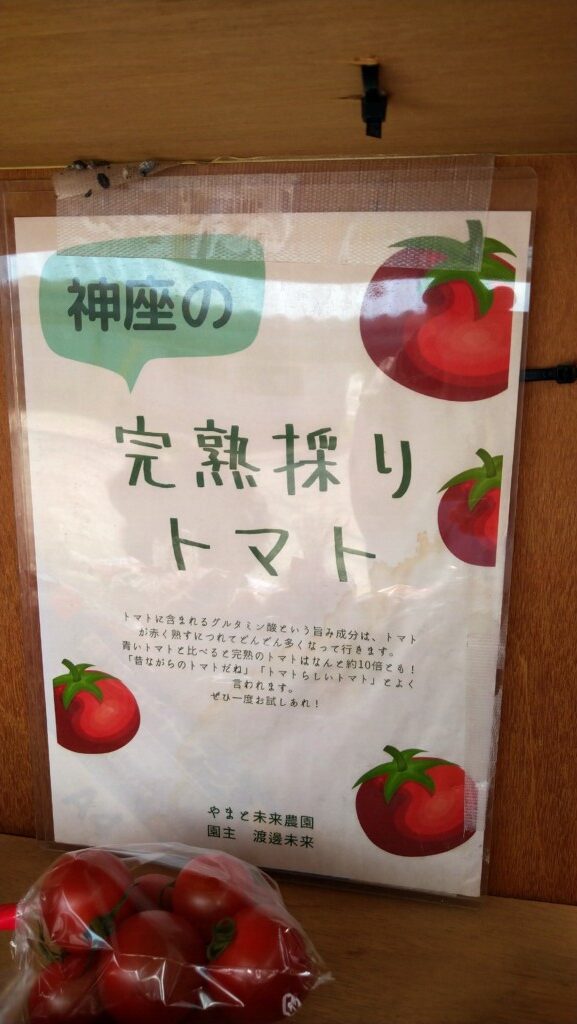 神座の
完熟採り
トマト
トマトに含まれるグルタミン酸という旨み成分は、トマト
が赤く熟すにつれてどんどん多くなって行きます。
青いトマトと比べると完熟のトマトはなんと約10倍とも!
「昔ながらのトマトだね」「トマトらしいトマト」とよく
言われます。
ぜひ一度お試しあれ!
やまと未来農園
園主 渡邊未来